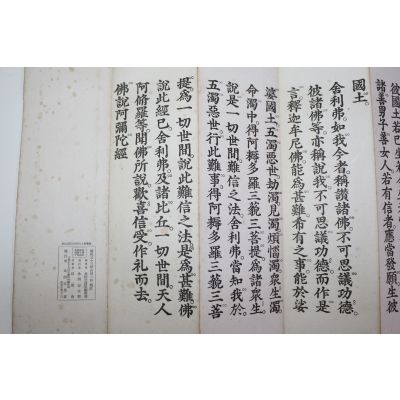 彼國土若
諸善男子善女人若有信者應當發願生彼
國土
舍利弗如我今者稱讚諸佛不可思議功德
彼諸佛等亦稱說我不可思議功德而作是
言釋迦牟尼佛能爲甚難希有之事能於娑
婆國土五濁惡世劫濁見濁煩惱濁衆生濁
命濁中得阿耨多羅三藐三菩提爲諸衆生
說是一切世間難信之法舍利弗當知我於
五濁惡世行此難事得阿耨多羅三藐三菩
提爲一切世間說此難信之法是爲甚難佛
說此經已舍利弗及諸比丘一切世間天人
阿脩羅等聞佛所說歡喜信受作礼而去
佛說阿彌陀經